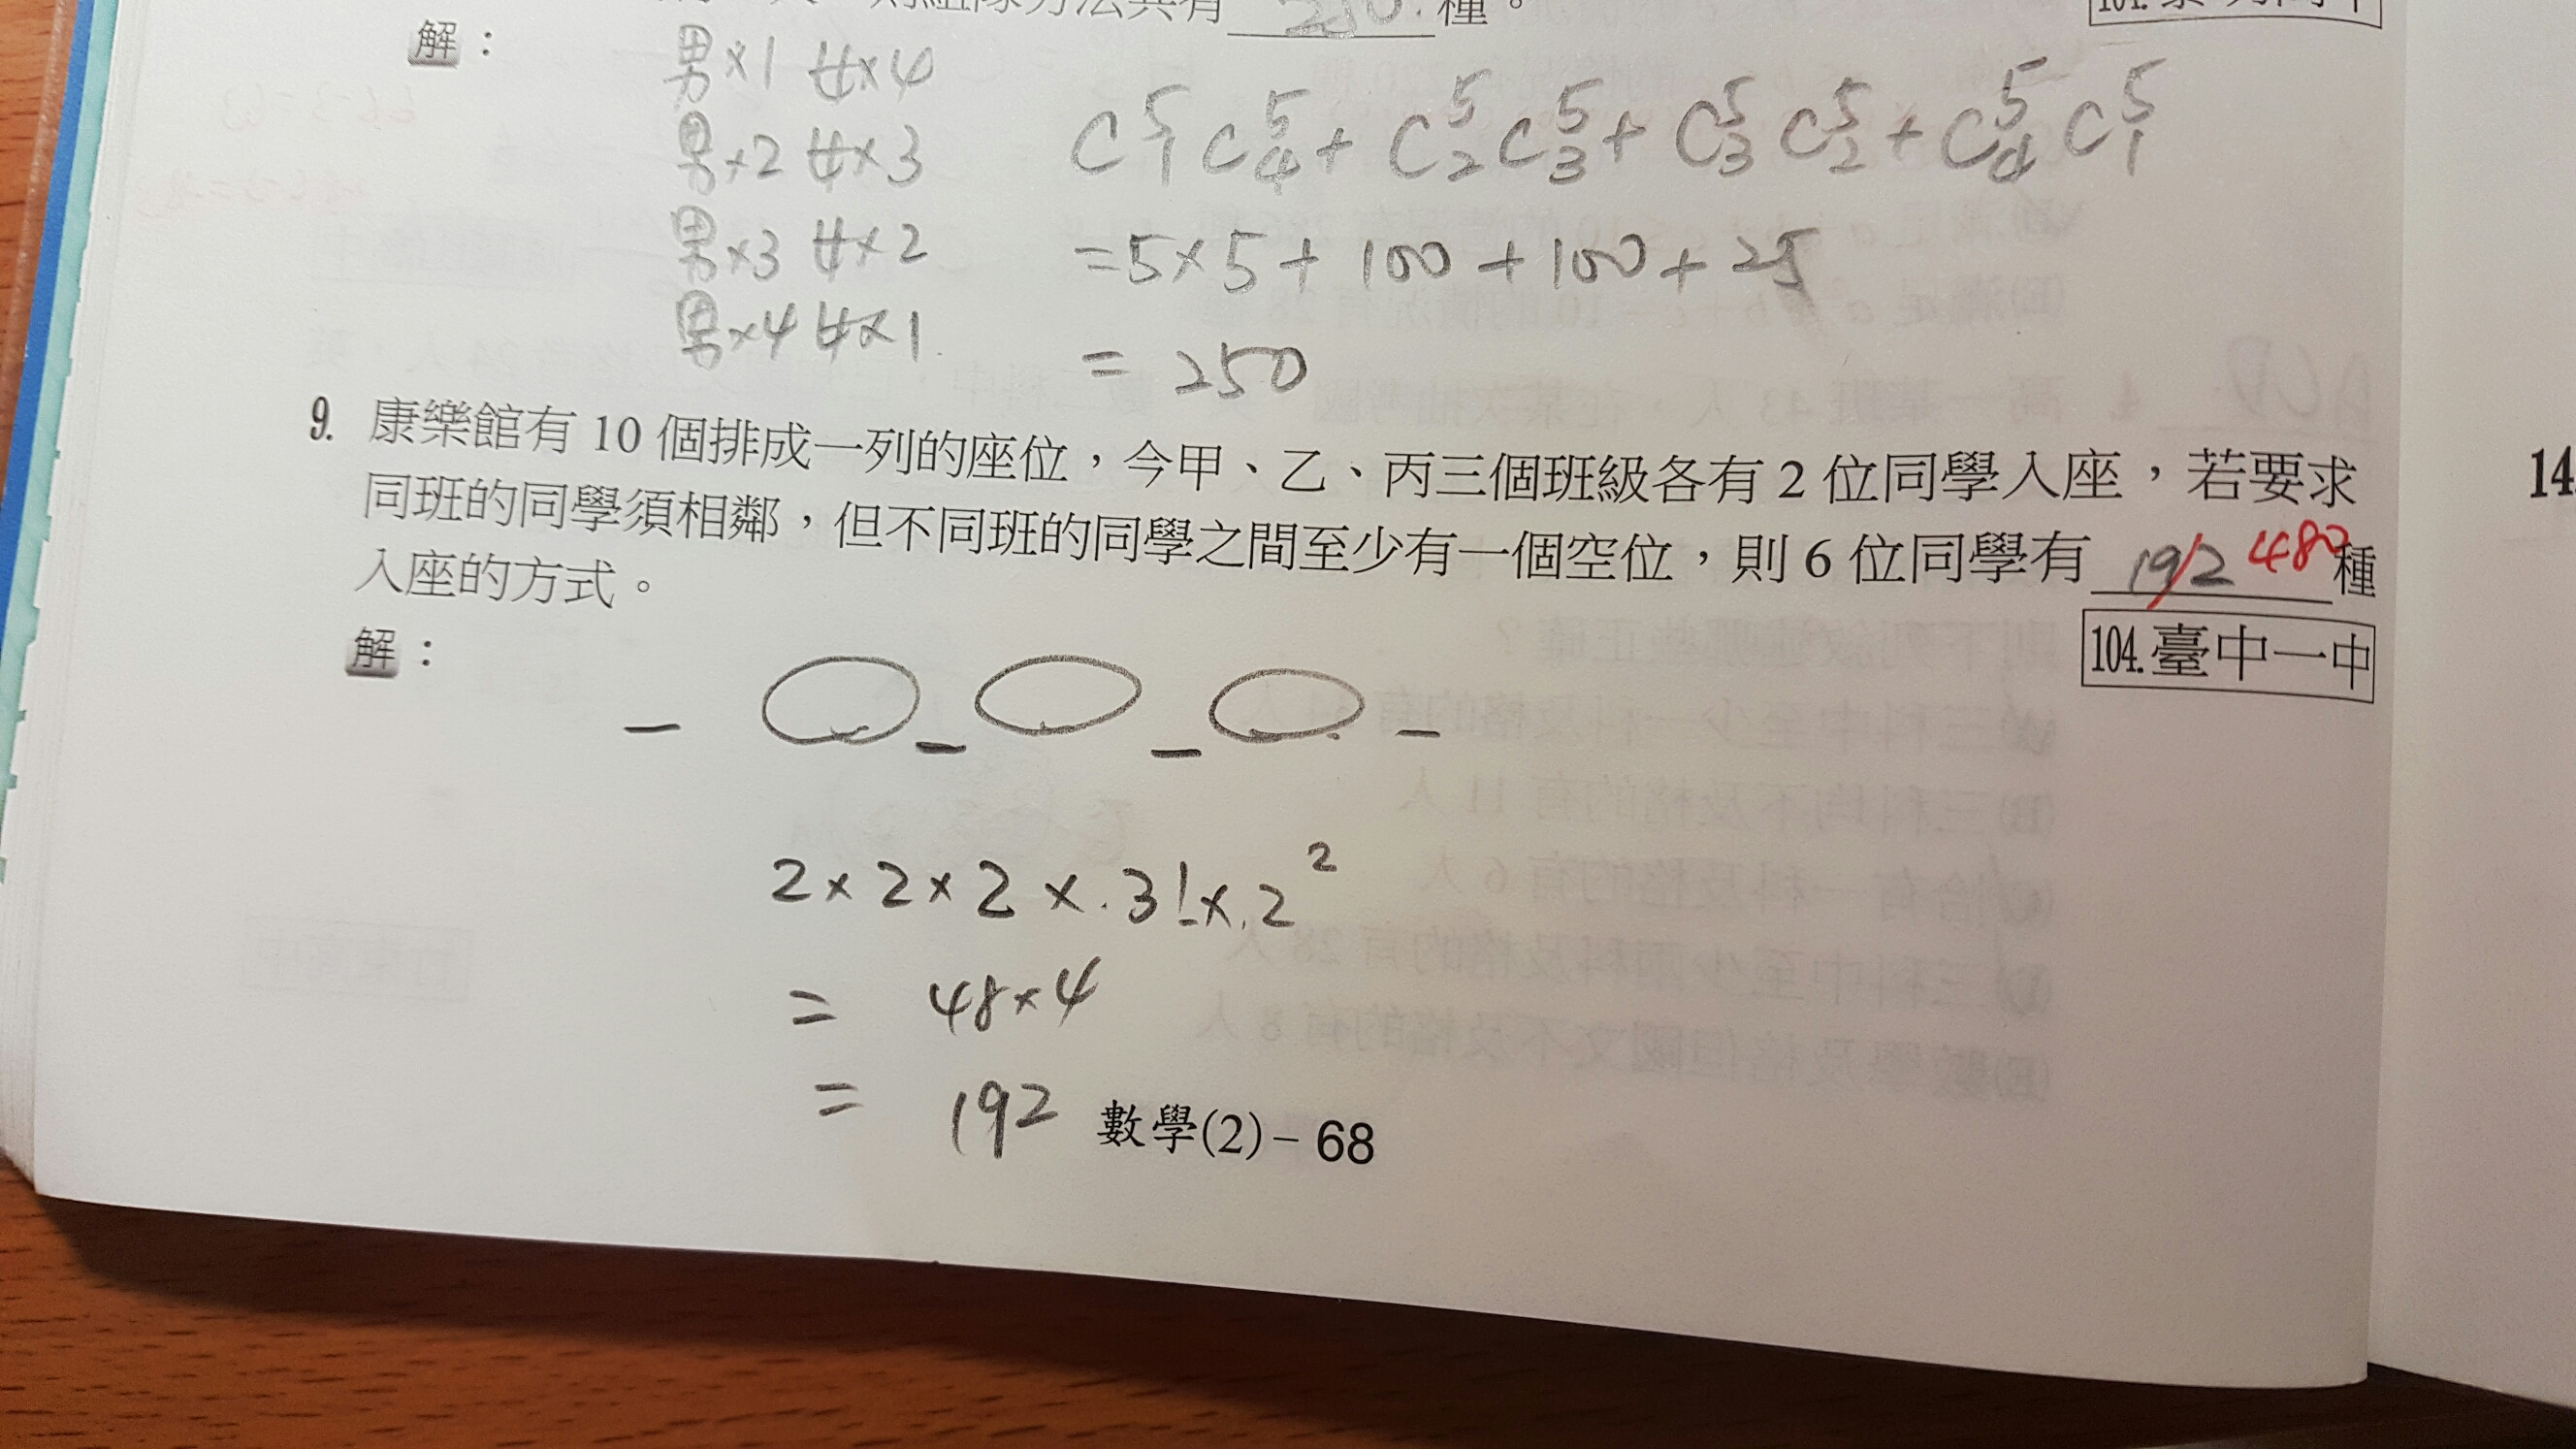 則組隊方法共有 250. 種。
解：
男×1 女×4
男×2 女×3
男×3 女×2
男×4 女×1.
C⁵₁C⁵₄+C⁵₂C⁵₃+C⁵₃C⁵₂+C⁵₄C⁵₁
=5×5+100+100+25
= 250
9. 康樂館有 10 個排成一列的座位，今甲、乙、丙三個班級各有 2 位同學入座，若要求
同班的同學須相鄰，但不同班的同學之間至少有一個空位，則 6 位同學有 192 480 種
入座的方式。
104.臺中一中
解：
2×2×2×.3!×.2²
= 48×4
= 192
數學(2)－68
14